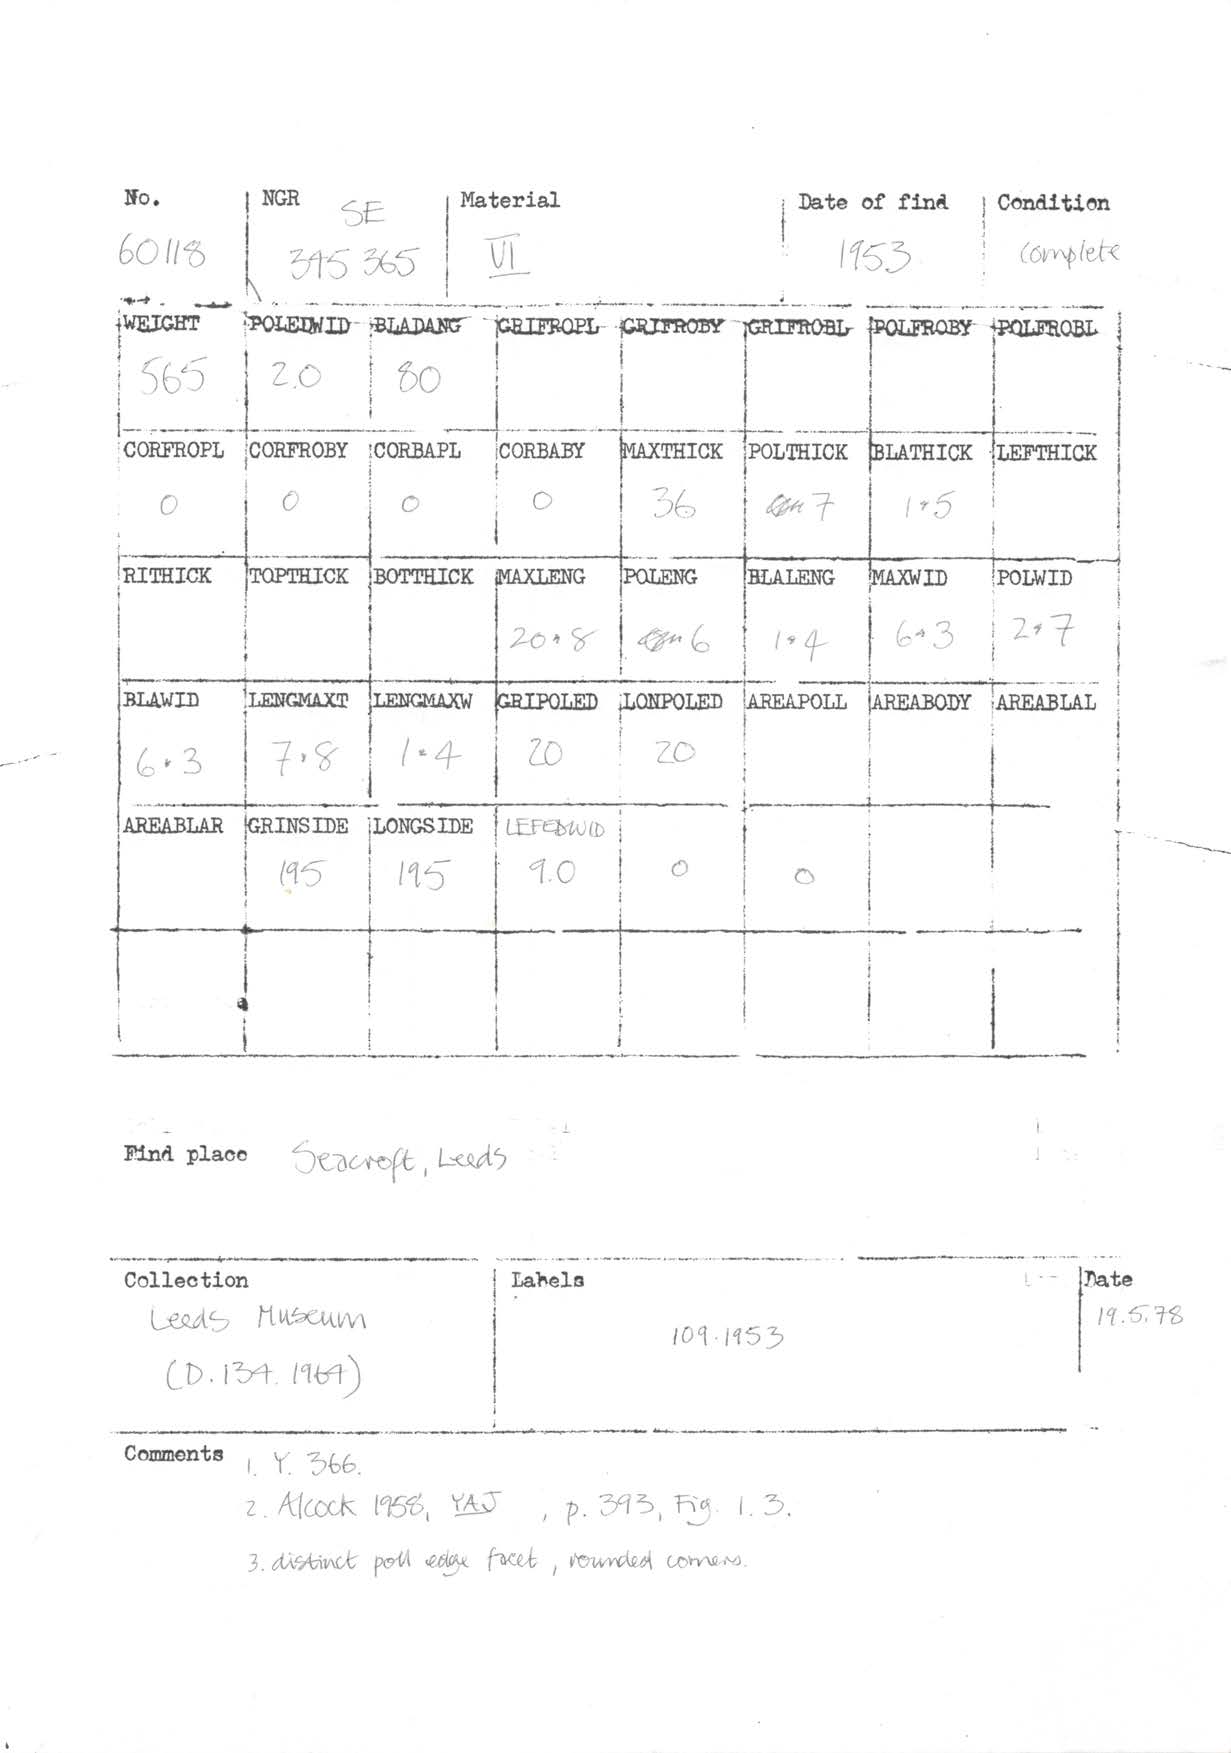 No. NGR Material Date of find Condition
60118 SE 345 365 VI 1953 complete
WEIGHT POLEDWID BLADANG GRIFROPL GRIFROBY GRIFROBL POLFROBY POLFROBL
565 2.0 80
CORFROPL CORFROBY CORBAPL CORBABY MAXTHICK POLTHICK BLATHICK LEFTHICK
0 0 0 0 36 7 1.5
RITHICK TOPTHICK BOTTHICK MAXLENG POLENG BLALENG MAXWID POLWID
20.8 6 1.4 6.3 2.7
BLAWID LENGMAXT LENGMAXW GRIPOLED LONPOLED AREAPOLL AREABODY AREABLAL
6.3 7.8 1.4 20 20
AREABLAR GRINSIDE LONGSIDE LEFEDWID
195 195 9.0 0 0
Find place Seacroft, Leeds
Collection Labels Date
Leeds Museum 109.1953 19.5.78
(D.134.1964)
Comments 1. Y. 366.
2. Alcock 1958, YAJ , p. 393, Fig. 1.3.
3. distinct poll edge facet, rounded corners.